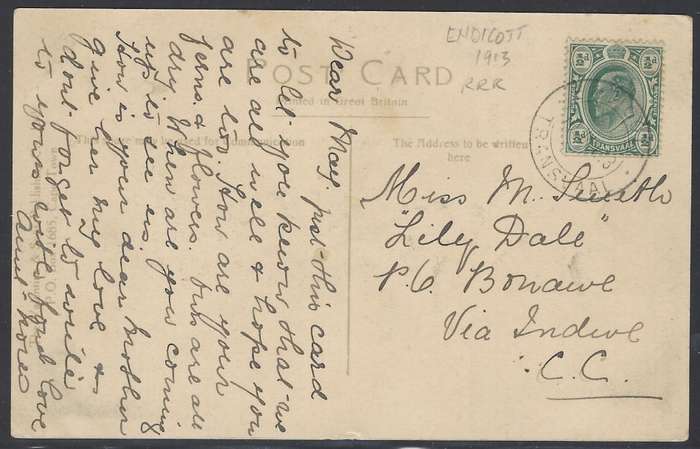 ENDICOTT
1913
RRR
POST CARD
Printed in Great Britain
The Address to be written
here
½D ½D
TRANSVAAL
TRANSVAAL
Dear May. Just this card
to let you know that we
are all well & hope you
are to. How are your
ferns & flowers. Ours are all
dry. When are you coming
up to see us.
How is your dear Mother &
give her my love &
dont forget to write
to yours with fond love
Aunt
Miss M.
"Lily Dale"
P.O. Bonawe
Via Indwe
C.C.